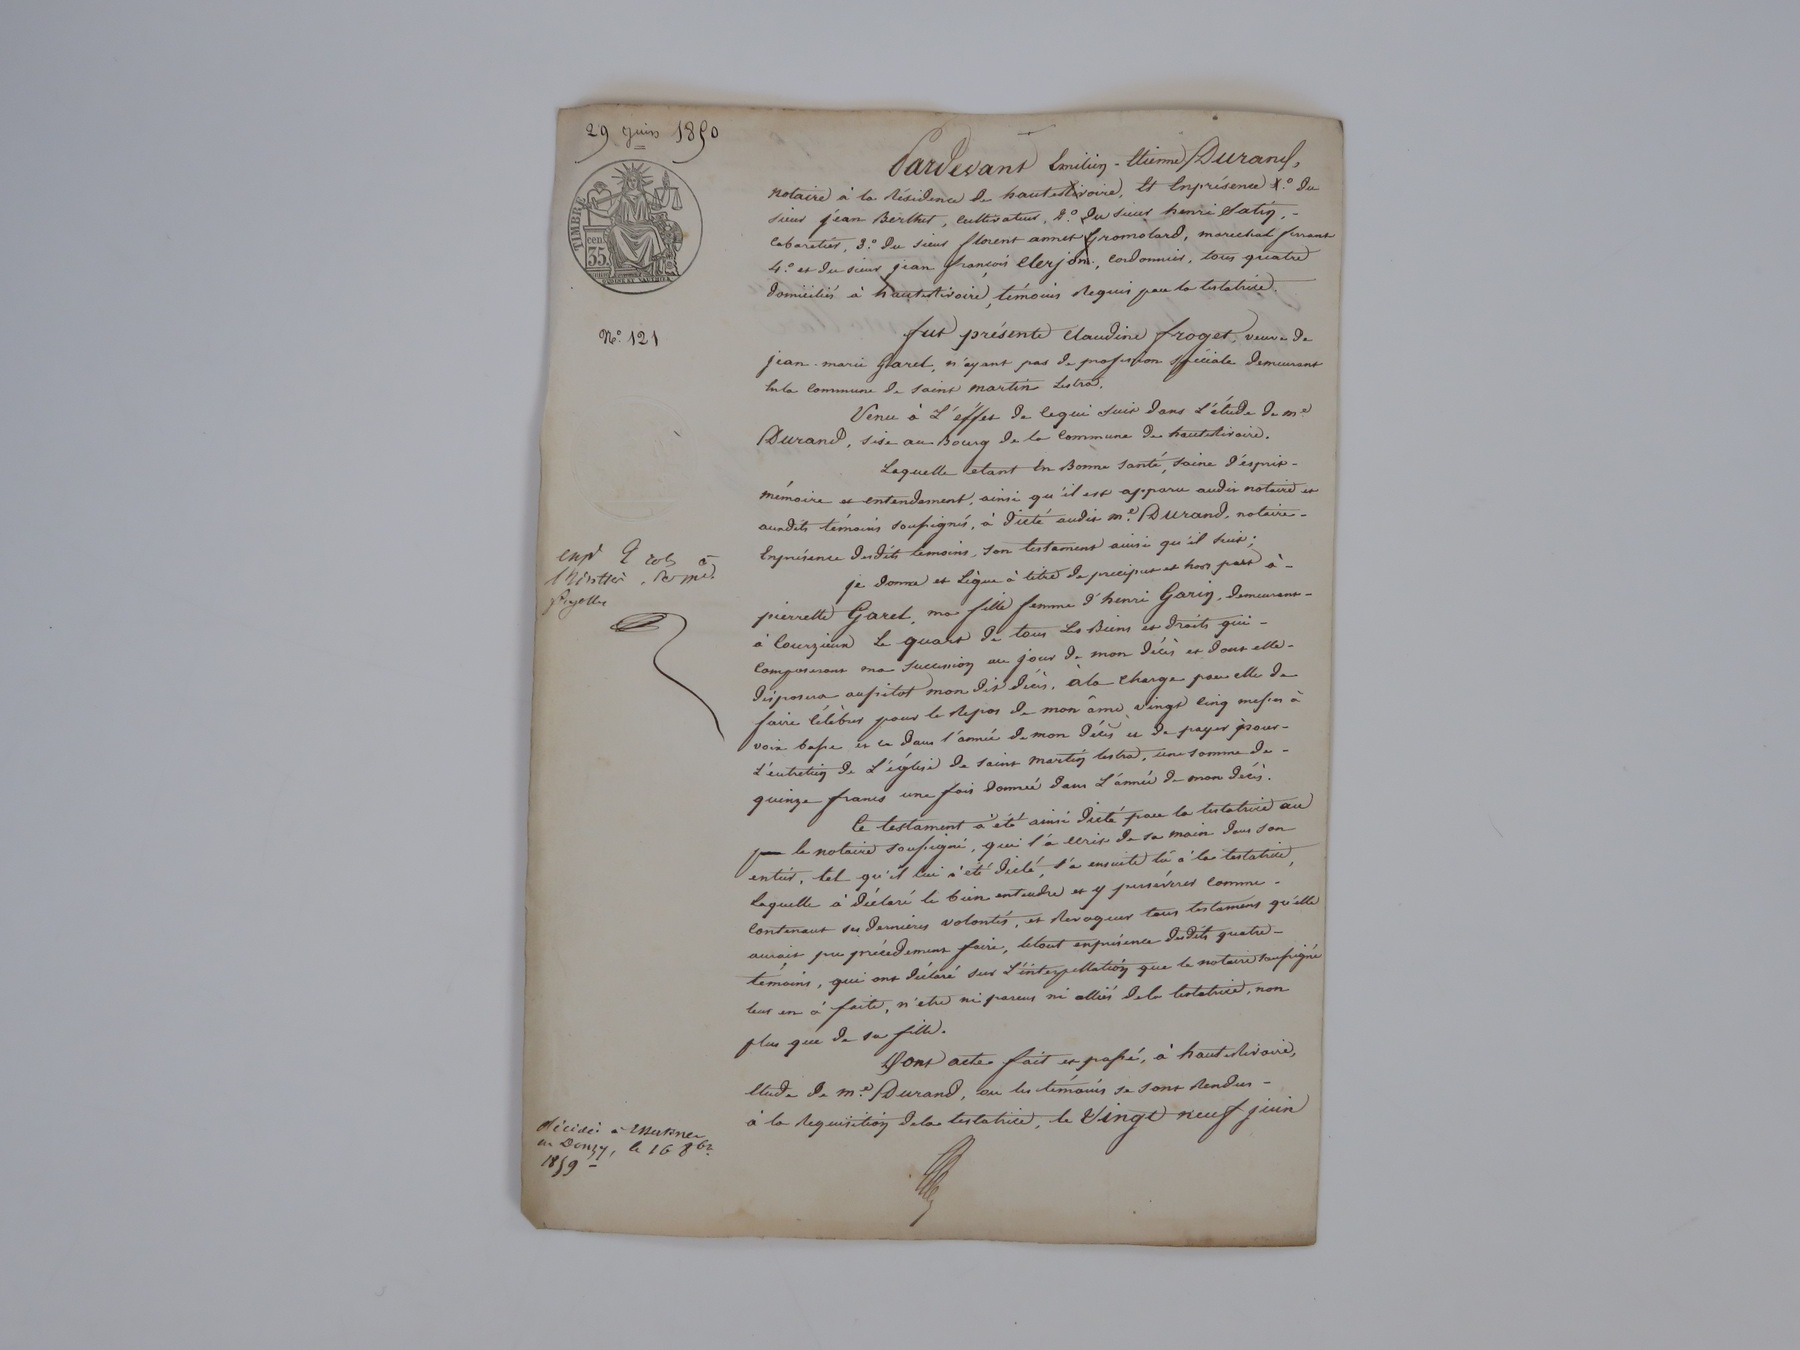 29 juin 1850
TIMBRE
cen.
35
N.º 121
Pardevant Emilien-Etienne Durand,
notaire à la Résidence de hauterivoire, Et Enprésence 1.º du
sieur jean Berthet, cultivateur, 2.º du sieur henri Satin, -
Cabaretier, 3.º du sieur florent annet Gromolard, marechal ferrant
4.º et du sieur jean françois Clerjon, cordonnier, tous quatre
domiciliés à hauterivoire, témoins Requis par la testatrice.
fut présente Claudine froget veuve de
jean-marie Garel, n'ayant pas de profession spéciale demeurant
En la Commune de saint martin Lestra.
Venue à L'éffet de cequi suit dans L'étude de m.e
Durand, sise au Bourg de la Commune de hauterivoire.
Laquelle etant En Bonne santé, saine d'ésprit -
mémoire et entendement, ainsi qu'il est apparu audit notaire et
auxdits témoins soussignés, à dicté audit m.e Durand, notaire -
Enprésence desdits temoins, son testament ainsi qu'il suit;
je donne et Lègue à titre de preciput et hors part à -
pierrette Garel, ma fille femme d'henri Garin, demeurant -
à Courzieux Le quart de tous Les Biens et droits qui -
Composeront ma succession au jour de mon décès et dont elle -
disposera aussitot mon dit décès, à la charge par elle de
faire Célébrer pour le Repos de mon âme vingt cinq messes à
voix basse et ce dans l'année de mon décès et de payer pour -
L'entretien de L'église de saint martin lestra, une somme de -
quinze francs une fois donnée dans L'année de mon décès.
Ce testament à été ainsi dicté par la testatrice au
le notaire soussigné, qui l'a écrit de sa main dans son
entier, tel qu'il lui à été dicté, l'a ensuite lu à la testatrice,
Laquelle à déclaré le bien entendre et y persévérer comme -
Contenant ses dernières volontés, et Revoquer tous testamens qu'elle
aurait pu précédement faire, letout enprésence desdits quatre -
témoins, qui ont déclaré sur L'interpellation que le notaire soussigné
leur en à faite, n'etre ni parens ni alliés dela testatrice, non
plus que de sa fille.
Dont acte fait et passé, à hauterivoire,
Etude de m.e Durand, ou les témoins se sont Rendus -
à la Requisition dela testatrice, le Vingt neuf juin
décédée à
en Donzy, le 16 8bre
1859 -